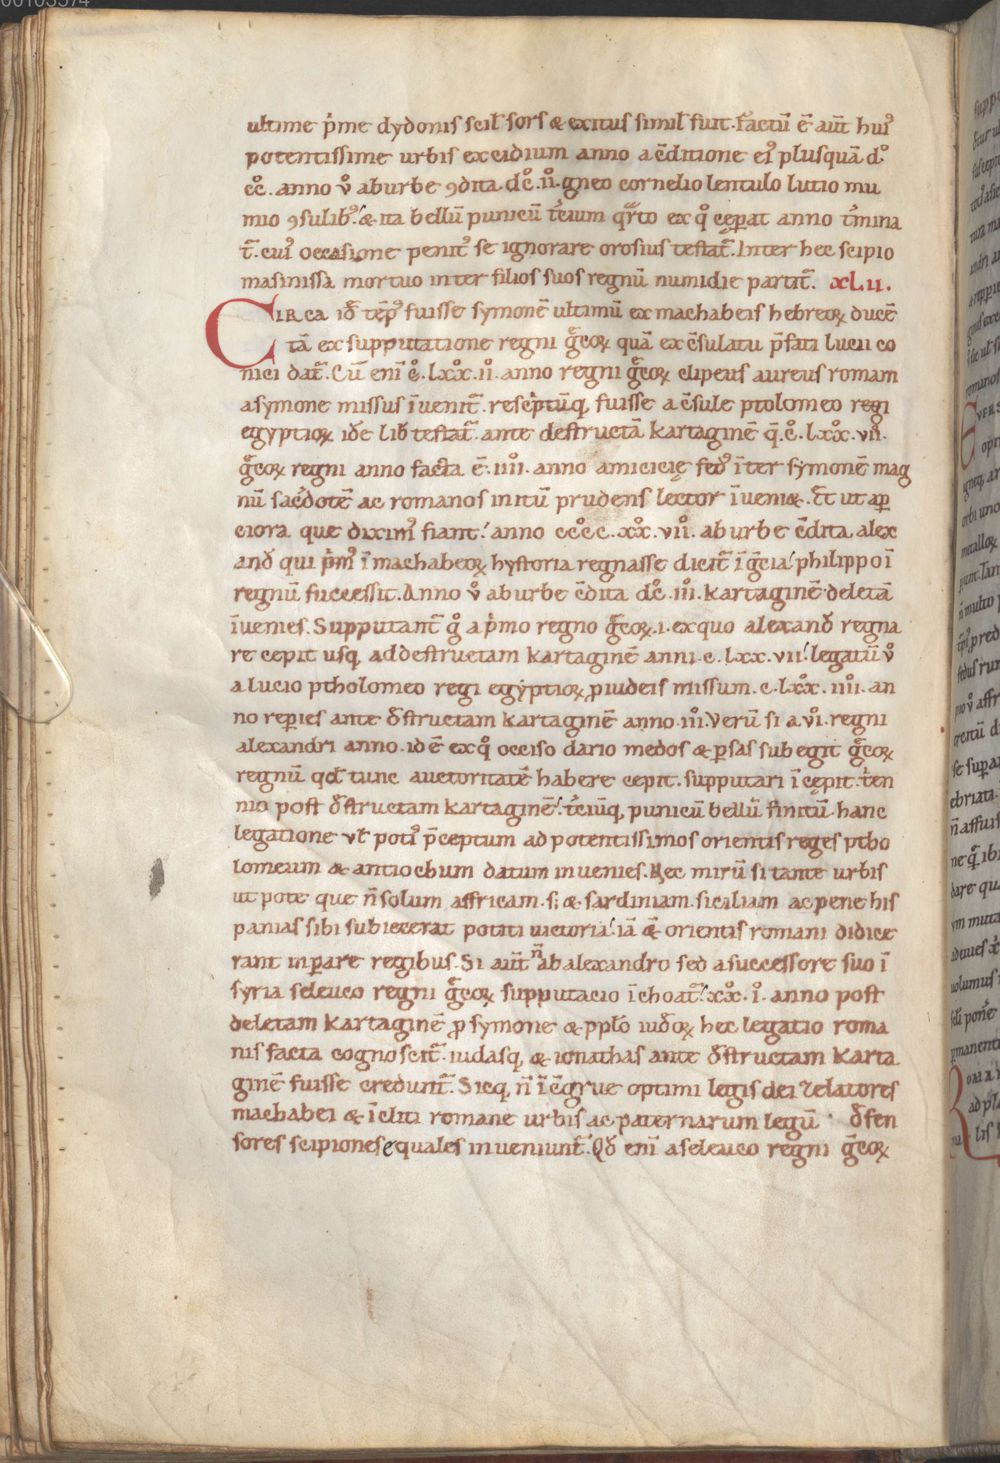 ultime p̾me dydonis scil' sors & exitus simil' fuit. factū ē aut̄ hui᷒
potentissime urbis excidium anno a c̄ditione ei᷒ plusquā d᷒.
cͨ. anno v̊ ab urbe ꝯdita. dͨc. ii. gneo cornelio lentulo lutio mu
mio ꝯsulib᷒. & ita bellū punicū t̄cium qrͣto ex q̊ cęperat anno t̄mina
t̄. cui᷒ occasione penit᷒ se ignorare orosius testat̄. Inter hec scipio
masinissa mortuo inter filios suos regnū numidie partit̄. xLii.
CIRCA id̄ tēp᷒ fuisse symonē ultimū ex machabeis hebreoꝝ ducē
tā ex supputatione regni ḡcoꝝ quā ex c̄sulatu p̄fati lucii co
nici dat̄. Cū enī c̊. lxͦx. ii. anno regni ḡcoꝝ clipeus aureus romam
a symone missus īvenit̄. resc̾ptūq, fuisse a c̄sule ptolomeo regi
egyptioꝝ id̄e lib̄ testat̄. ante destructā kartaginē q̄. c̊. lxͦx. vii.
ḡcoꝝ regni anno facta ē. iiii. anno amicicię fed᷒ īter symonē mag
nū sac̄dotē ac romanos initū prudens lector īveni&. Et ut ap̄
ciora que dixim᷒ fiant. anno cͦcͦcc. xͦx. vii. ab urbe c̄dita alex
and̄ qui p̾m᷒ ī machabeoꝝ hystoria regnasse dicit̄ ī ḡcia. philippo ī
regnū successit. Anno v̊ ab urbe c̄dita dͨc. iii. kartaginē deletā
īvenies. Supputant̄ g̊ a p̾mo regno ḡcoꝝ. i. ex quo alexand̄ regna
re cepit usq, ad destructam kartaginē anni. c. lxx. vii. legatū v̊
a lucio ptholomeo regi egyptioꝝ ꝓ iudeis missum. c. lxͦx. iiii. an
no rep̄ies ante d̄structam kartaginē anno. iii. Verū si a. vi. regni
alexandri anno. id ē ex q̊ occiso dario medos & p̄sas subegit ḡcoꝝ
regnū qd̄ tunc auctoritatē habere cepit. supputari īcepit. t̾en
nio post d̄structam kartaginē. t̄ciūq, punicū bellū finitū. hanc
legatione vl̄ poti᷒ p̄ceptum ad potentissimos orientis reges ptho
lomeum & antiochum datum invenies. Nec mirū si tante urbis
ut pote que n̄ solum affricam. s; & sardiniam. siciliam ac pene his
panias sibi subiecerat potiti victoria. iā & orientis romani didice
rant inp̄are regibus. Si aut̄ n̄ ab alexandro sed a successore suo ī
syria seleuco regni ḡcoꝝ supputacio īchoat̄. xͦx. i. anno post
deletam kartaginē ꝓ symone & pp̄lo iud̄oꝝ hec legatio roma
nis facta cognoscit̄. iudasq, & ionathas ante d̄structam karta
ginē fuisse credunt̄. Sicq, n̄ īc̄grue optimi legis dei zelatores
machabei & īcliti romane urbis ac paternarum legū d̄fen
sores scipiones equales inveniunt̄. Qd̄ enī a seleuco regni ḡcoꝝ